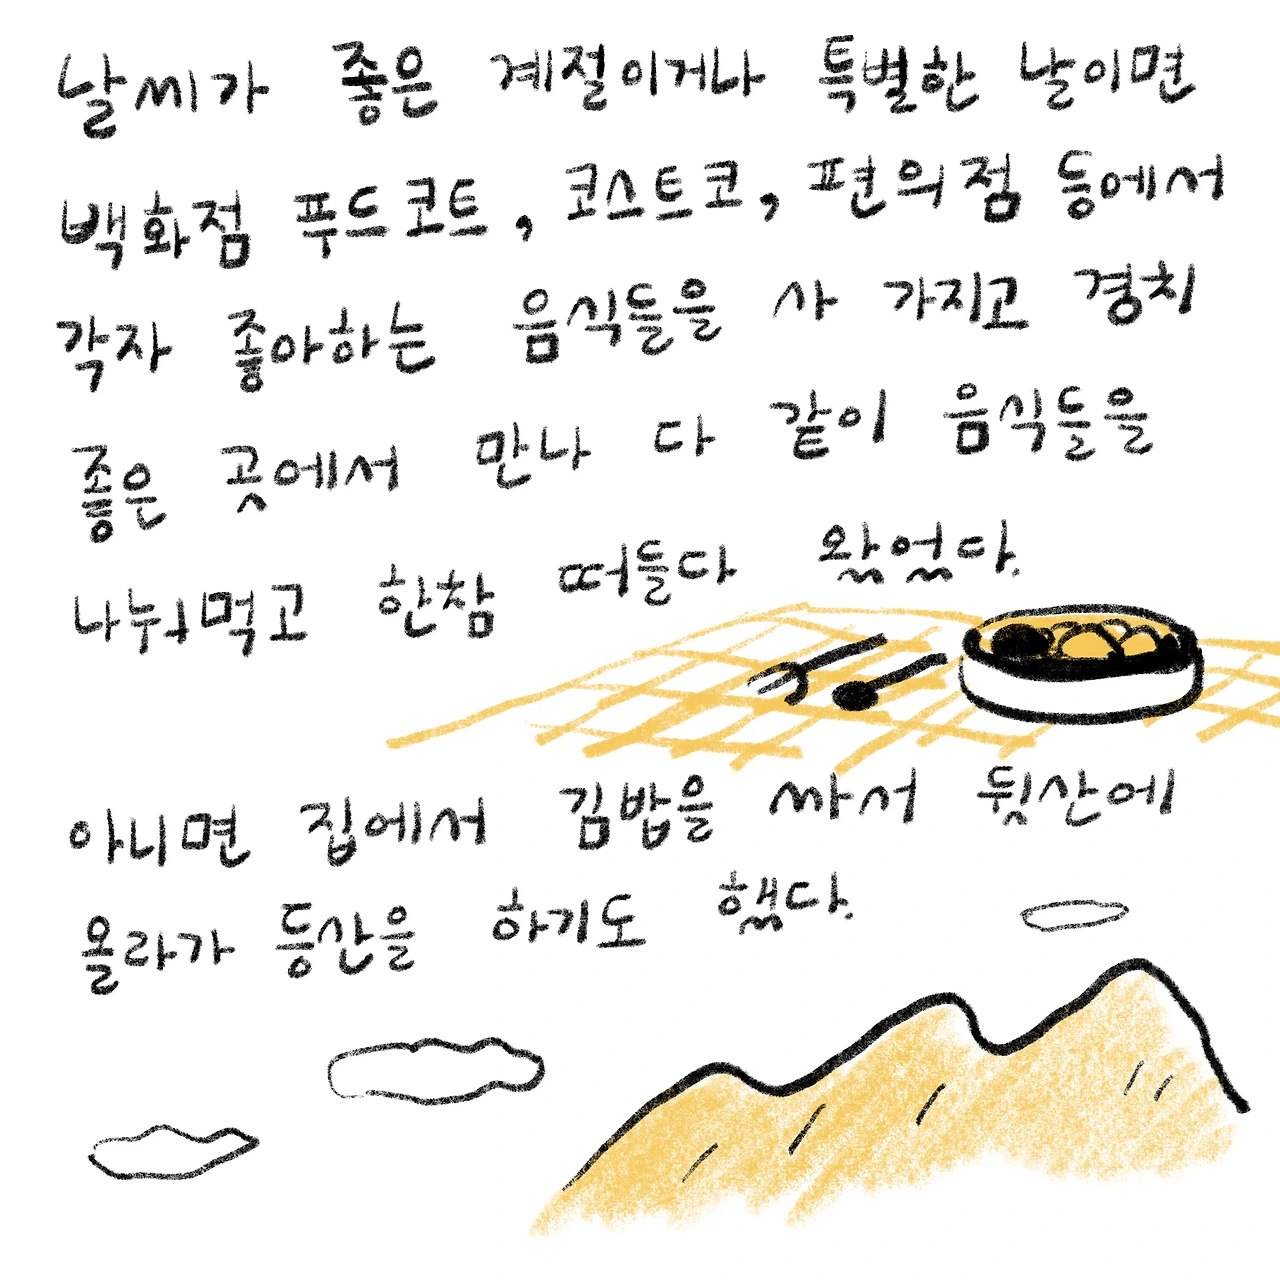 날씨가 좋은 계절이거나 특별한 날이면
백화점 푸드코트, 코스트코, 편의점 등에서
각자 좋아하는 음식들을 사 가지고 경치
좋은 곳에서 만나 다 같이 음식들을
나눠먹고 한참 떠들다 왔었다.
아니면 집에서 김밥을 싸서 뒷산에
올라가 등산을 하기도 했다.